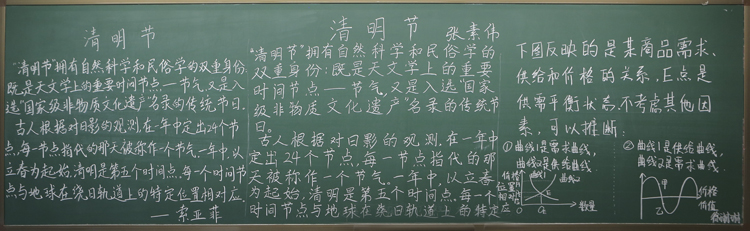 清明节
"清明节"拥有自然科学和民俗学的双重身份:
既是天文学上的重要时间节点—节气,又是入
选"国家级非物质文化遗产"名录的传统节日。
古人根据对日影的观测,在一年中定出24个节
点,每一节点指代的那天被称作一个节气。一年中,以
立春为起始,清明是第五个时间点,每一个时间节
点与地球在绕日轨道上的特定位置相对应。
——索亚菲
清明节 张素伟
"清明节"拥有自然科学和民俗学的
双重身份:既是天文学上的重要
时间节点—节气,又是入选"国家
级非物质文化遗产"名录的传统节
日。
古人根据对日影的观测,在一年中
定出24个节点,每一节点指代的那
天被称作一个节气。一年中,以立春
为起始,清明是第五个时间点,每一个
时间节点与地球在绕日轨道上的特定
位置相对应
下图反映的是某商品需求、
供给和价格的关系,E点是
供需平衡状态,不考虑其他因
素,可以推断:
①曲线1是需求曲线,
曲线2是供给曲线
价格
曲线1
E
数量
②曲线1是供给曲线,
曲线2是需求曲线.
甲
乙
价格
价值